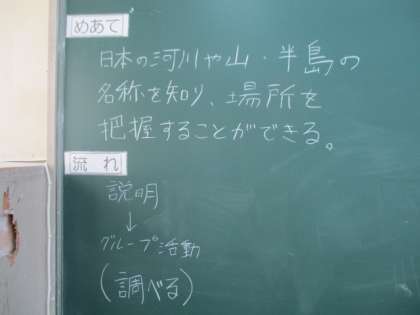 めあて
日本の河川や山・半島の
名称を知り、場所を
把握することができる。
流れ
説明
↓
グループ活動
(調べる)